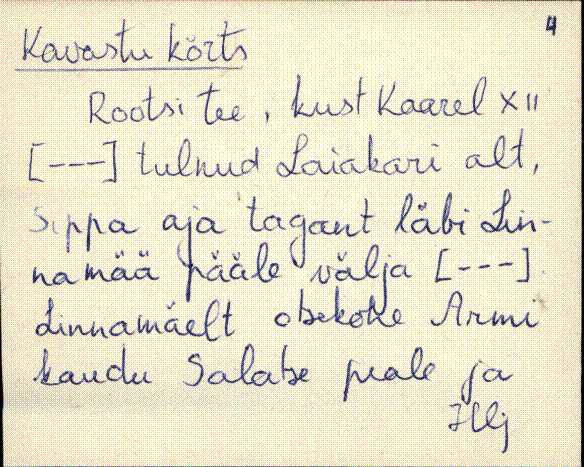 4
Kavastu kõrts
Rootsi tee, kust Kaarel XII
[---] tulnud Laiakari alt,
Sippa aja tagant läbi Lin-
namää pääle välja [---]
Linnamäelt otsekohe Armi
kaudu Salatse peale ja